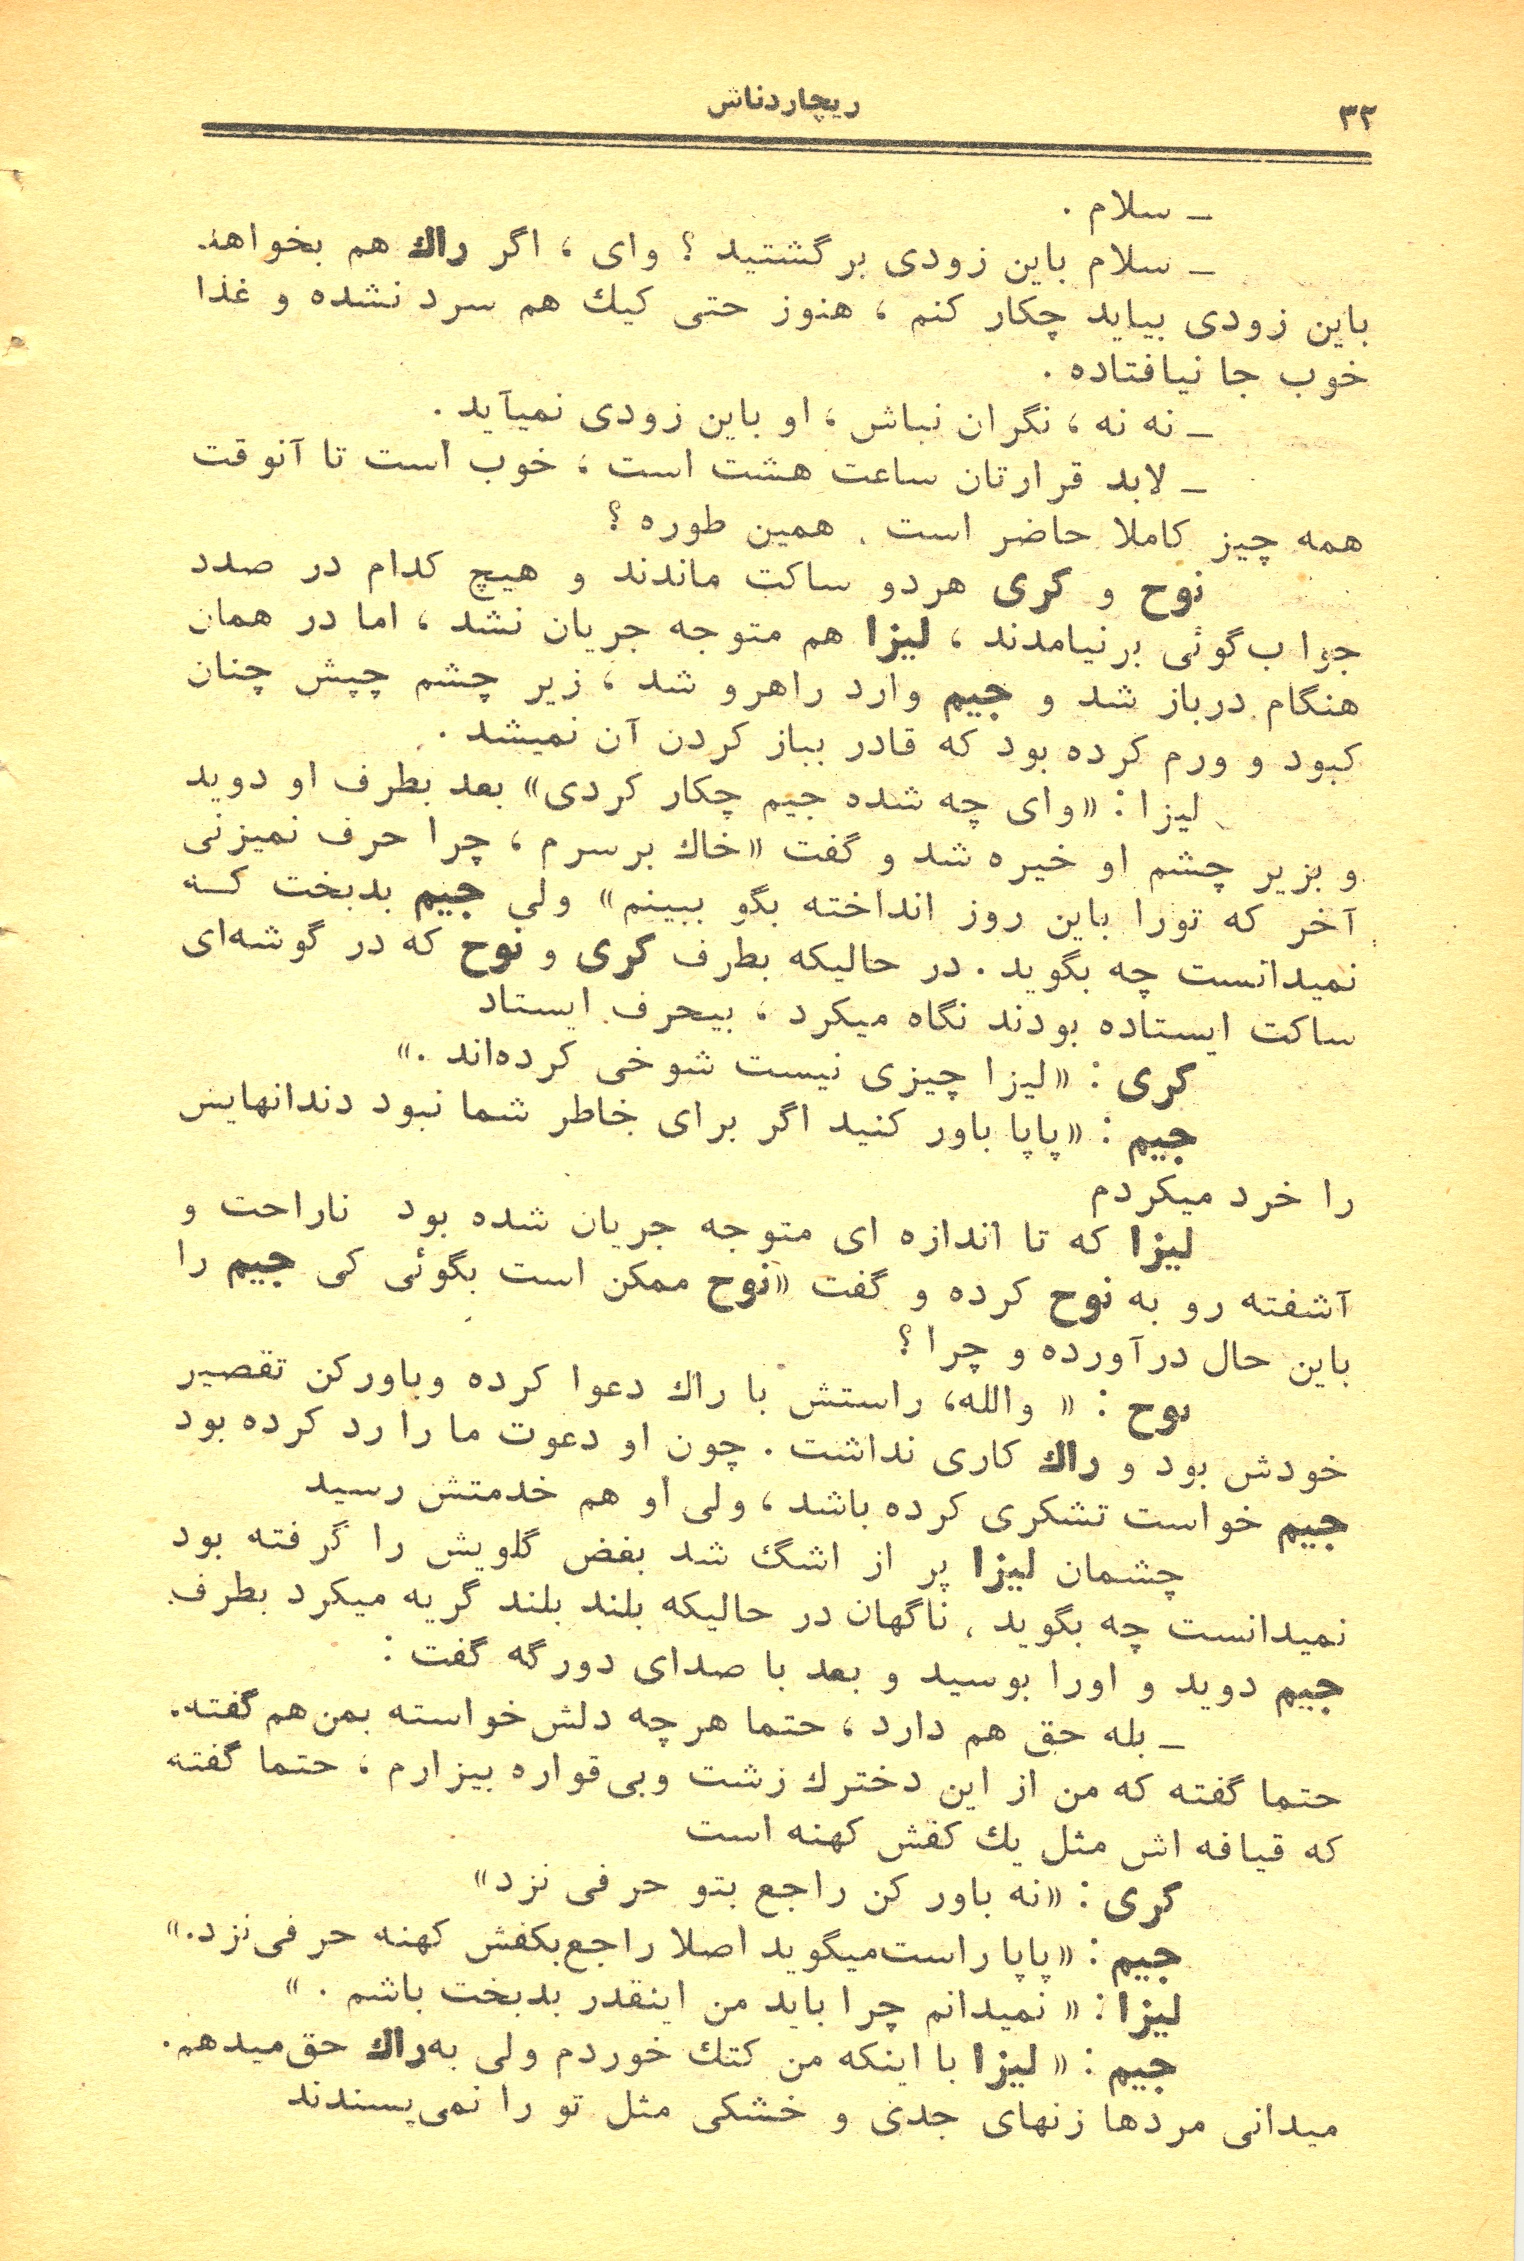 ۳۲
ریچاردناش
ـ سلام .
ـ سلام باین زودی برگشتید ؟ وای ، اگر راك هم بخواهد
باین زودی بیاید چکار کنم ، هنوز حتی کیك هم سرد نشده و غذا
خوب جا نیافتاده .
ـ نه نه ، نگران نباش ، او باین زودی نمیآید .
ـ لابد قرارتان ساعت هشت است ، خوب است تا آنوقت
همه چیز کاملا حاضر است . همین طوره ؟
نوح و کری هردو ساکت ماندند و هیچ کدام در صدد
جواب‌گوئی برنیامدند ، لیزا هم متوجه جریان نشد ، اما در همان
هنگام درباز شد و جیم وارد راهرو شد ، زیر چشم چپش چنان
کبود و ورم کرده بود که قادر بباز کردن آن نمیشد .
لیزا : «وای چه شده جیم چکار کردی» بعد بطرف او دوید
و بزیر چشم او خیره شد و گفت «خاك برسرم ، چرا حرف نمیزنی
آخر که تورا باین روز انداخته بگو ببینم» ولی جیم بدبخت کـه
نمیدانست چه بگوید . در حالیکه بطرف کری و نوح که در گوشه‌ای
ساکت ایستاده بودند نگاه میکرد ، بیحرف ایستاد
کری : «لیزا چیزی نیست شوخی کرده‌اند .»
جیم : «پاپا باور کنید اگر برای خاطر شما نبود دندانهایش
را خرد میکردم
لیزا که تا اندازه ای متوجه جریان شده بود ناراحت و
آشفته رو به نوح کرده و گفت «نوح ممکن است بگوئی کی جیم را
باین حال درآورده و چرا ؟
نوح : « والله، راستش با راك دعوا کرده وباورکن تقصیر
خودش بود و راك کاری نداشت . چون او دعوت ما را رد کرده بود
جیم خواست تشکری کرده باشد ، ولی او هم خدمتش رسید
چشمان لیزا پر از اشگ شد بغض گلویش را گرفته بود
نمیدانست چه بگوید . ناگهان در حالیکه بلند بلند گریه میکرد بطرف
جیم دوید و اورا بوسید و بعد با صدای دورگه گفت :
ـ بله حق هم دارد ، حتما هرچه دلش خواسته بمن هم گفته.
حتما گفته که من از این دخترك زشت وبی‌قواره بیزارم ، حتما گفته
که قیافه اش مثل یك کفش کهنه است
کری : «نه باور کن راجع بتو حرفی نزد»
جیم : «پاپا راست‌میگوید اصلا راجع‌بکفش کهنه حرفی‌نزد.»
لیزا : « نمیدانم چرا باید من اینقدر بدبخت باشم . »
جیم : « لیزا با اینکه من کتك خوردم ولی به‌راك حق‌میدهم.
میدانی مردها زنهای جدی و خشکی مثل تو را نمی‌پسندند